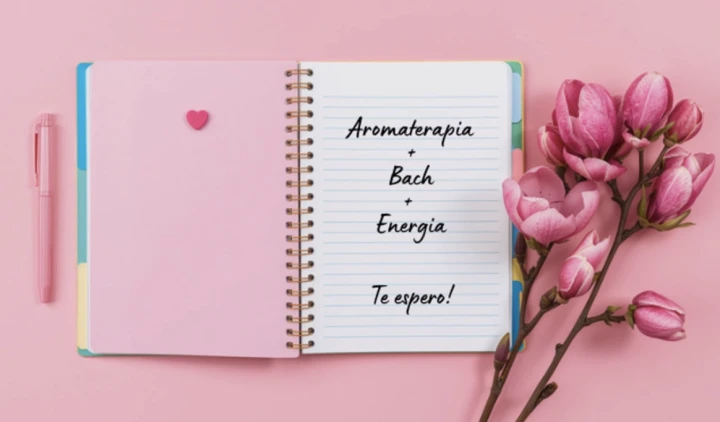 Aromaterapia
+
Bach
+
Energia
Te espero!